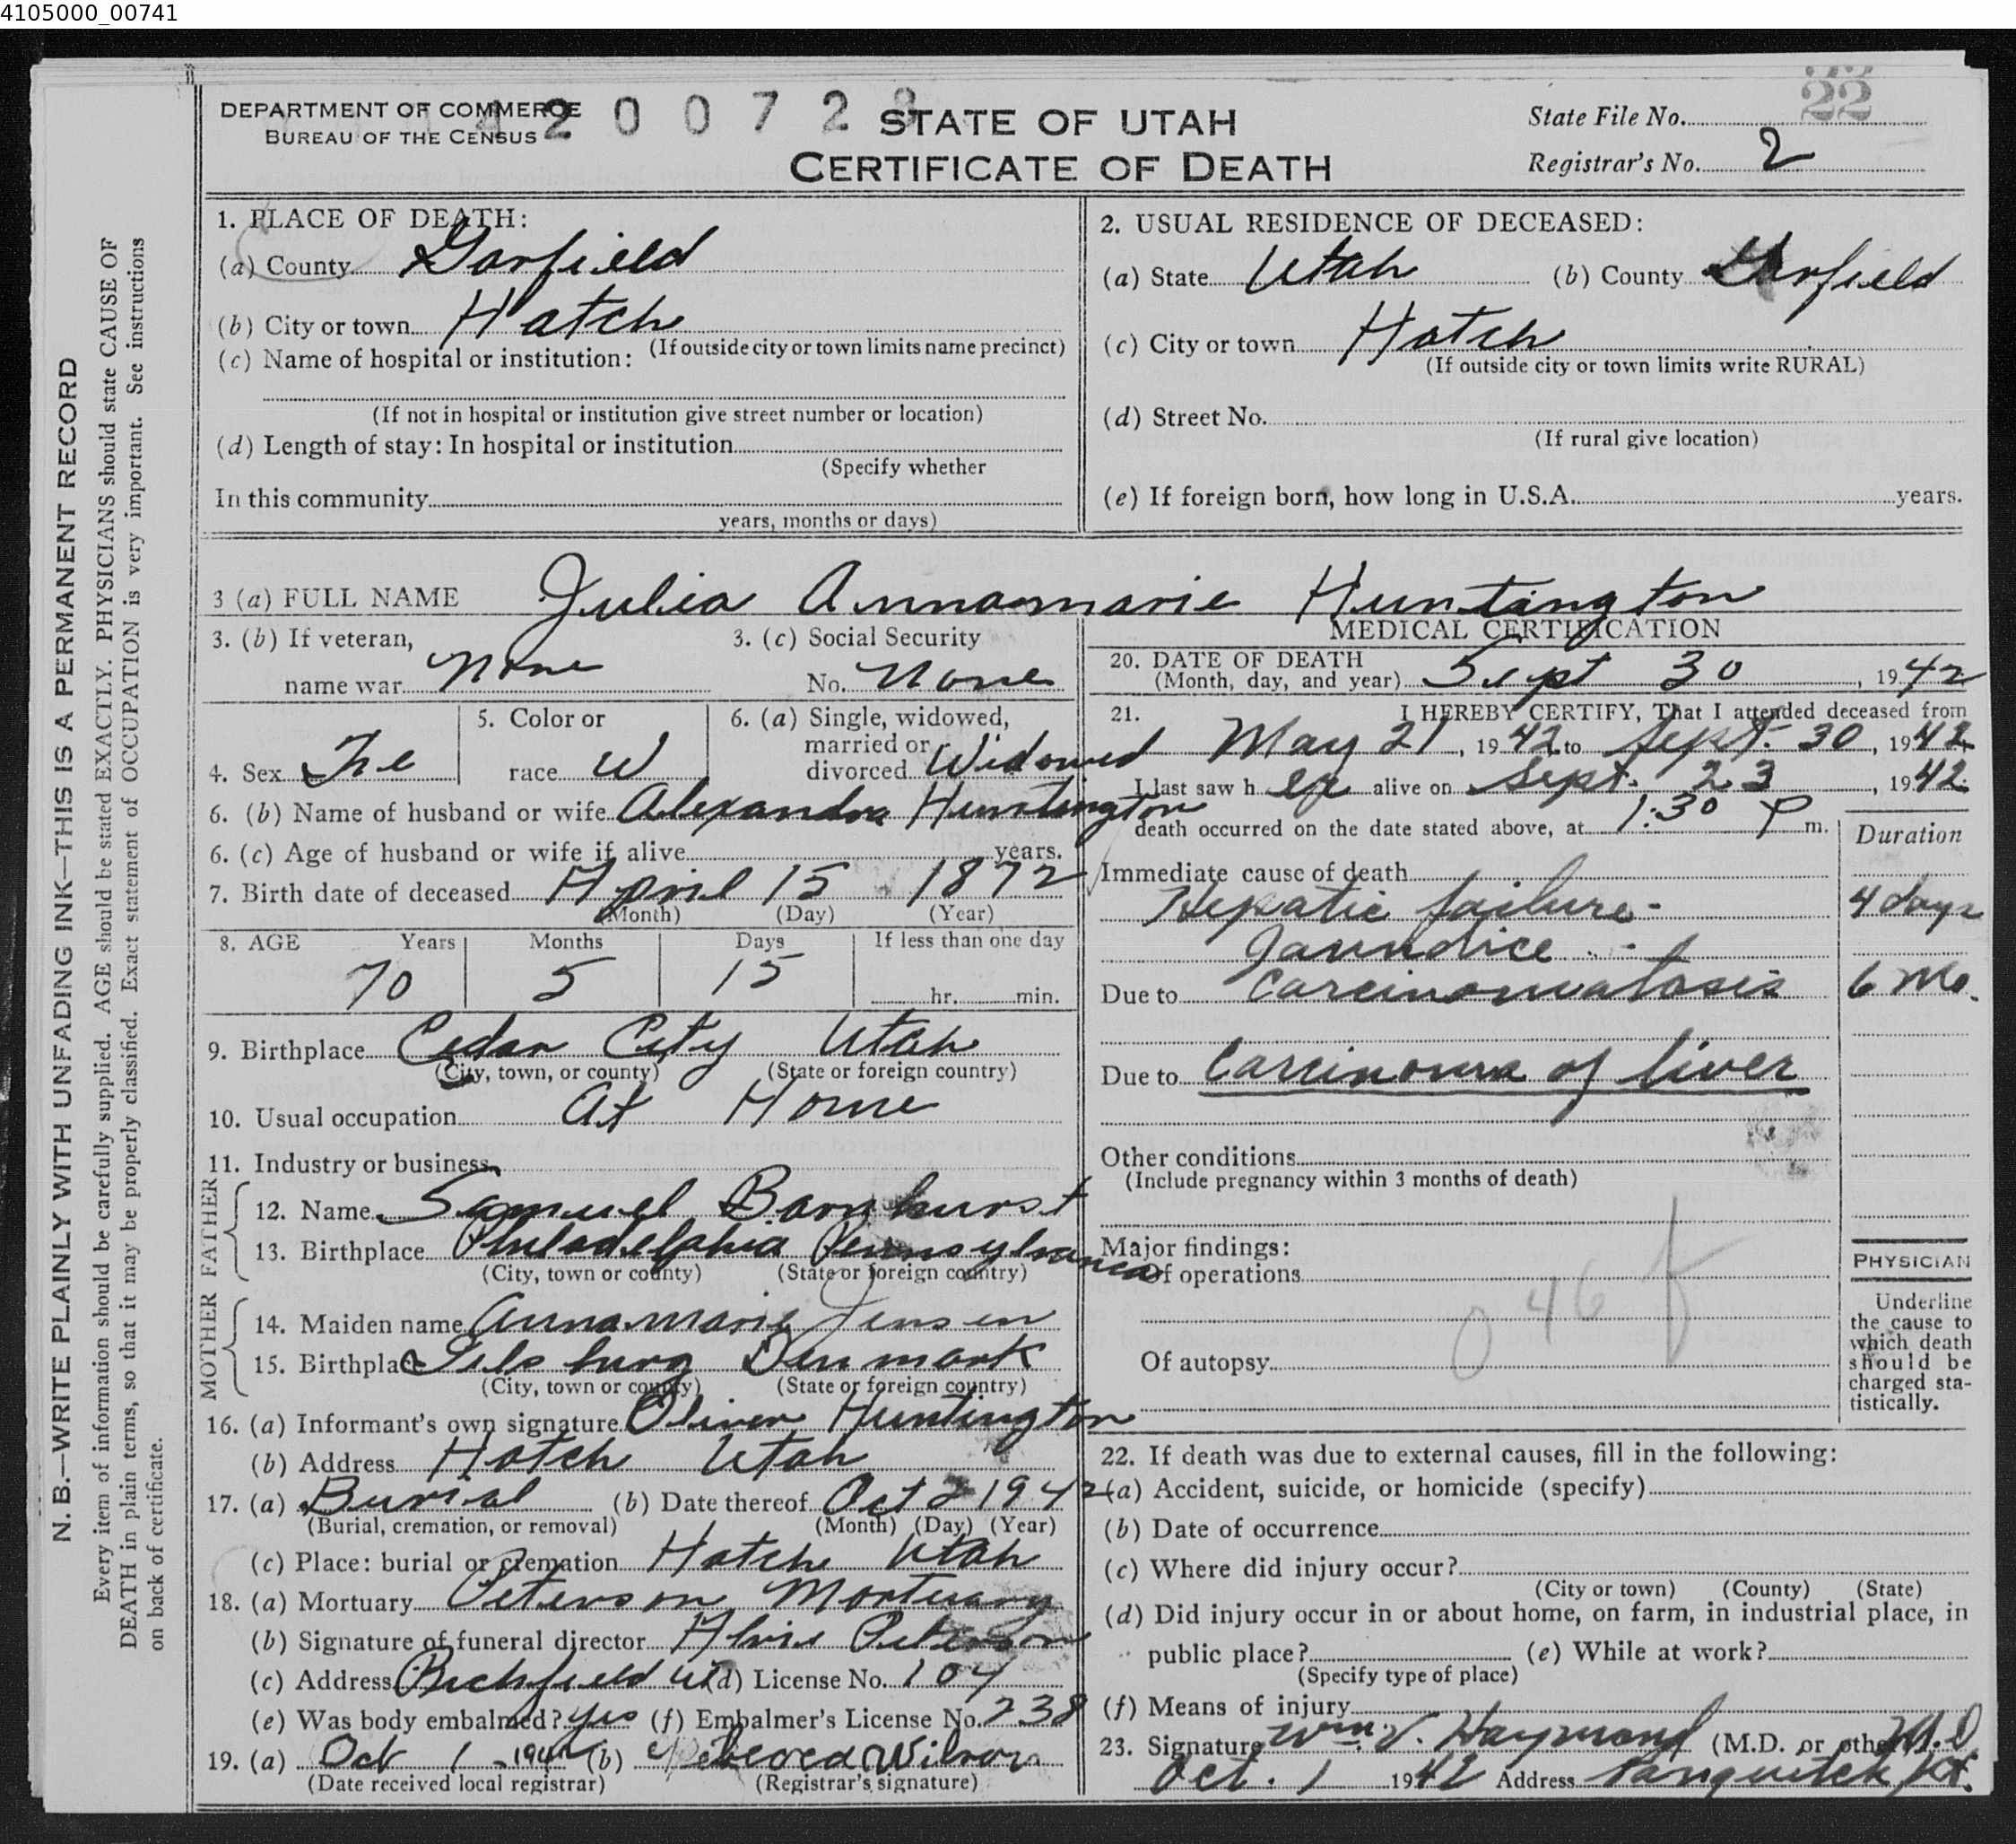 4105000_00741
DEPARTMENT OF COMMERCE
BUREAU OF THE CENSUS
4 2 0 0 7 2 8
STATE OF UTAH
CERTIFICATE OF DEATH
State File No. 22
Registrar's No. 2
N. B.—WRITE PLAINLY WITH UNFADING INK—THIS IS A PERMANENT RECORD
Every item of information should be carefully supplied. AGE should be stated EXACTLY. PHYSICIANS should state CAUSE OF
DEATH in plain terms, so that it may be properly classified. Exact statement of OCCUPATION is very important. See instructions
on back of certificate.
1. PLACE OF DEATH:
(a) County Garfield
(b) City or town Hatch
(If outside city or town limits name precinct)
(c) Name of hospital or institution:
(If not in hospital or institution give street number or location)
(d) Length of stay: In hospital or institution
(Specify whether
In this community
years, months or days)
2. USUAL RESIDENCE OF DECEASED:
(a) State Utah (b) County Garfield
(c) City or town Hatch
(If outside city or town limits write RURAL)
(d) Street No.
(If rural give location)
(e) If foreign born, how long in U.S.A. years.
3 (a) FULL NAME Julia Annamarie Huntington
3. (b) If veteran,
name war None
3. (c) Social Security
No. None
4. Sex Fe
5. Color or
race W
6. (a) Single, widowed,
married or
divorced Widowed
6. (b) Name of husband or wife Alexandra Huntington
6. (c) Age of husband or wife if alive years.
7. Birth date of deceased April 15 1872
(Month) (Day) (Year)
8. AGE Years Months Days If less than one day
70 5 15 hr. min.
9. Birthplace Cedar City Utah
(City, town, or county) (State or foreign country)
10. Usual occupation At Home
11. Industry or business
FATHER
12. Name Samuel Barnhurst
13. Birthplace Philadelphia Pennsylvania
(City, town or county) (State or foreign country)
MOTHER
14. Maiden name Annamarie Jensen
15. Birthplace Denmark
(City, town or county) (State or foreign country)
16. (a) Informant's own signature Oliver Huntington
(b) Address Hatch Utah
17. (a) Burial (b) Date thereof Oct 2 1942
(Burial, cremation, or removal) (Month) (Day) (Year)
(c) Place: burial or cremation Hatch Utah
18. (a) Mortuary Peterson Mortuary
(b) Signature of funeral director Peterson
(c) Address Richfield Ut (d) License No. 104
(e) Was body embalmed? yes (f) Embalmer's License No. 238
19. (a) Oct 1 1942 (b) Rebecca Wilson
(Date received local registrar) (Registrar's signature)
MEDICAL CERTIFICATION
20. DATE OF DEATH
(Month, day, and year) Sept 30, 1942
21. I HEREBY CERTIFY, That I attended deceased from
May 21, 1942 to Sept. 30, 1942
I last saw her alive on Sept. 23, 1942
death occurred on the date stated above, at 1:30 P m.
Duration
Immediate cause of death
Hepatic failure - 4 days
Jaundice
Due to Carcinomatosis 6 Mo.
Due to Carcinoma of liver
Other conditions
(Include pregnancy within 3 months of death)
Major findings:
Of operations
046 f
Of autopsy
PHYSICIAN
Underline
the cause to
which death
should be
charged sta-
tistically.
22. If death was due to external causes, fill in the following:
(a) Accident, suicide, or homicide (specify)
(b) Date of occurrence
(c) Where did injury occur?
(City or town) (County) (State)
(d) Did injury occur in or about home, on farm, in industrial place, in
public place? (e) While at work?
(Specify type of place)
(f) Means of injury
23. Signature Wm. V. Haymond (M.D. or other) M.D.
Oct. 1 1942 Address Panguitch Ut.